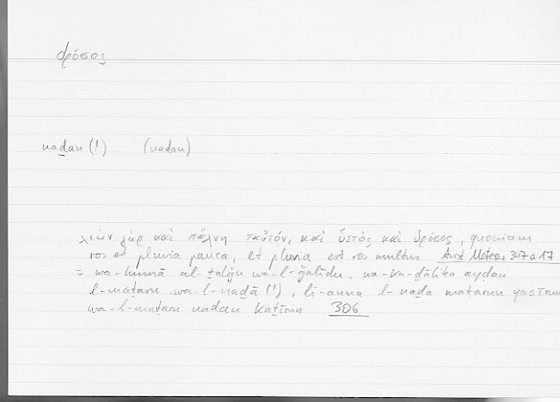 δρόσος
naḏan (!) (nadan)
χιὼν γὰρ καὶ πάχνη ταὐτόν, καὶ ὑετὸς καὶ δρόσος, quoniam
ros est pluvia pauca, et pluvia est ros multus Arist Meteor 347a17
= al-ṯalǧu wa-l-ǧalīdu. wa-ka-ḏālika ayḍan
l-maṭaru wa-l-naḏā (!), li-anna l-nadā maṭarun yasīrun
wa-l-maṭaru nadan kaṯīrun 306